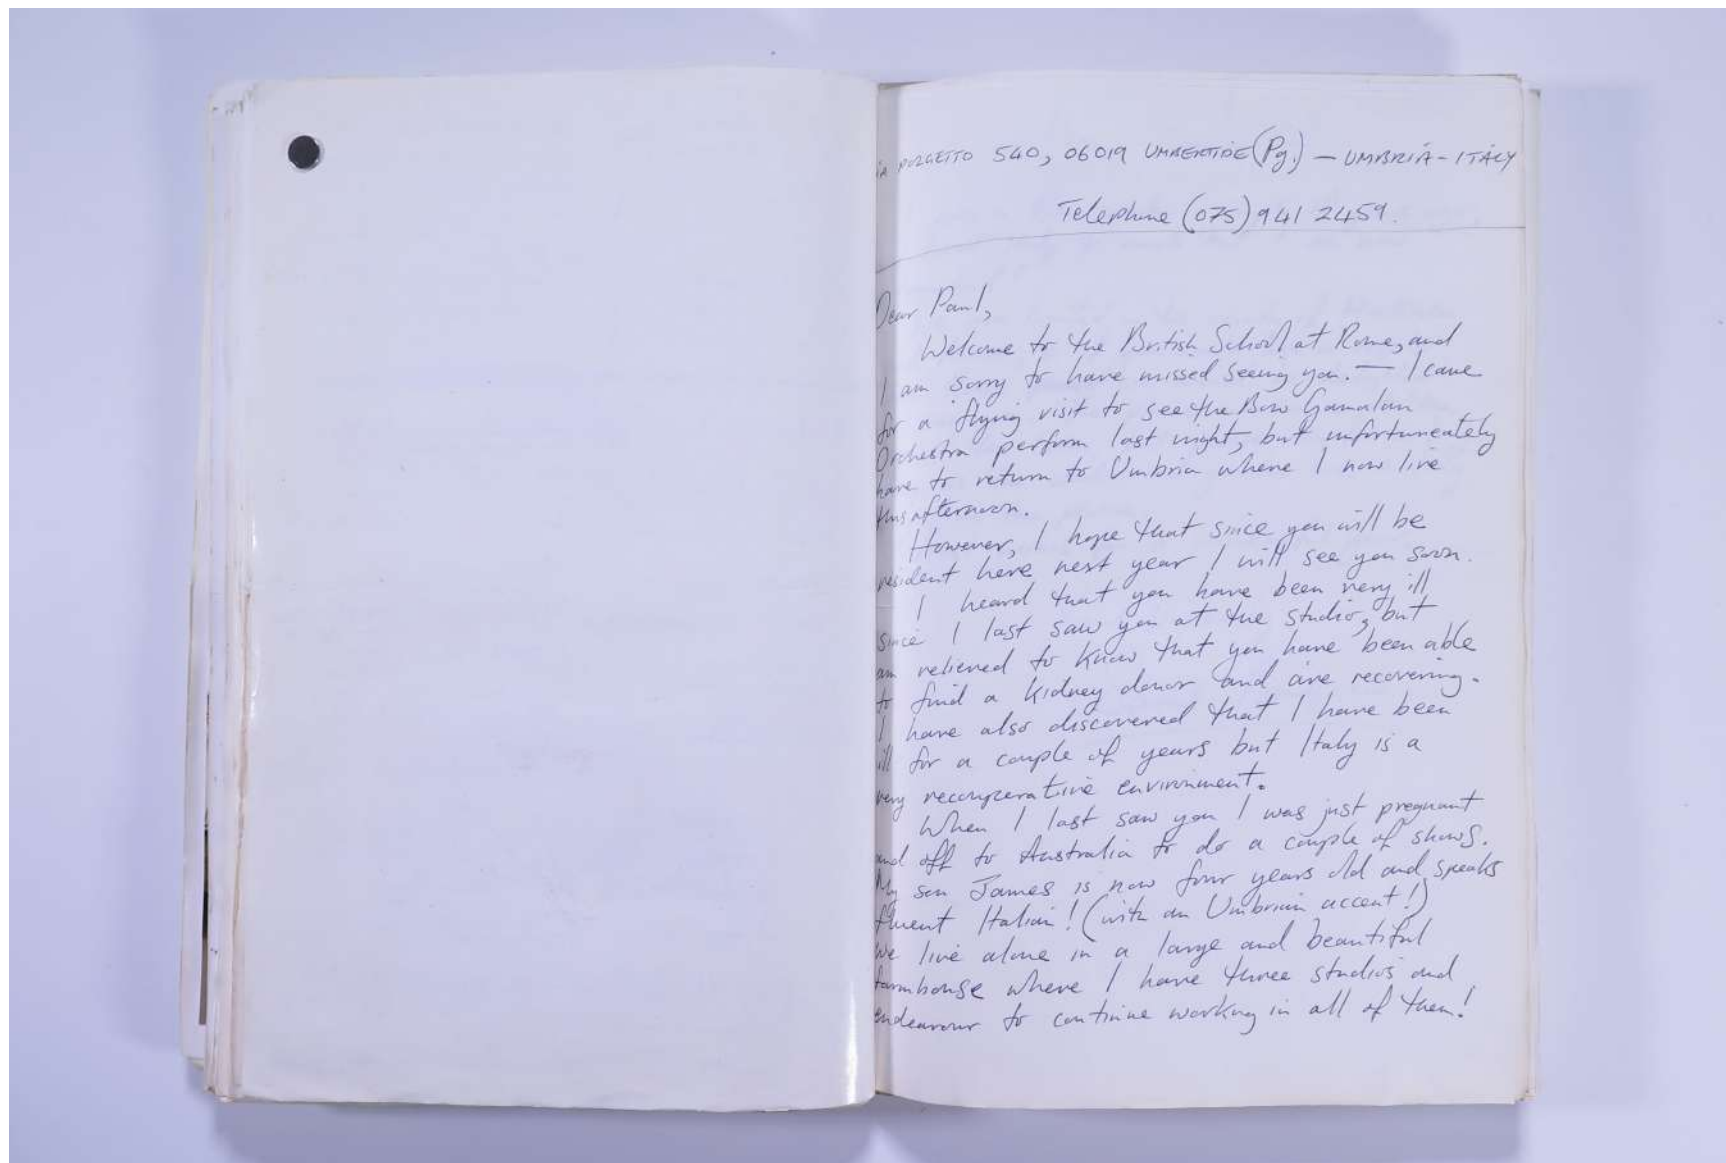 540, 06019 UMBERTIDE (Pg.) — UMBRIA - ITALY
Telephone (075) 941 2459.
Dear Paul,
Welcome to the British School at Rome, and
I am sorry to have missed seeing you. — I came
for a flying visit to see the Bow Gamalan
Orchestra perform last night, but unfortuneately
have to return to Umbria where I now live
this afternoon.
However, I hope that since you will be
resident here next year I will see you soon.
I heard that you have been very ill
since I last saw you at the studio, but
am relieved to know that you have been able
to find a kidney donor and are recovering.
I have also discovered that I have been
ill for a couple of years but Italy is a
very recouperative environment.
When I last saw you I was just pregnant
and off to Australia to do a couple of shows.
My son James is now four years old and speaks
fluent Italian! (with an Umbrian accent!)
We live alone in a large and beautiful
farmhouse where I have three studios and
endeavour to continue working in all of them!